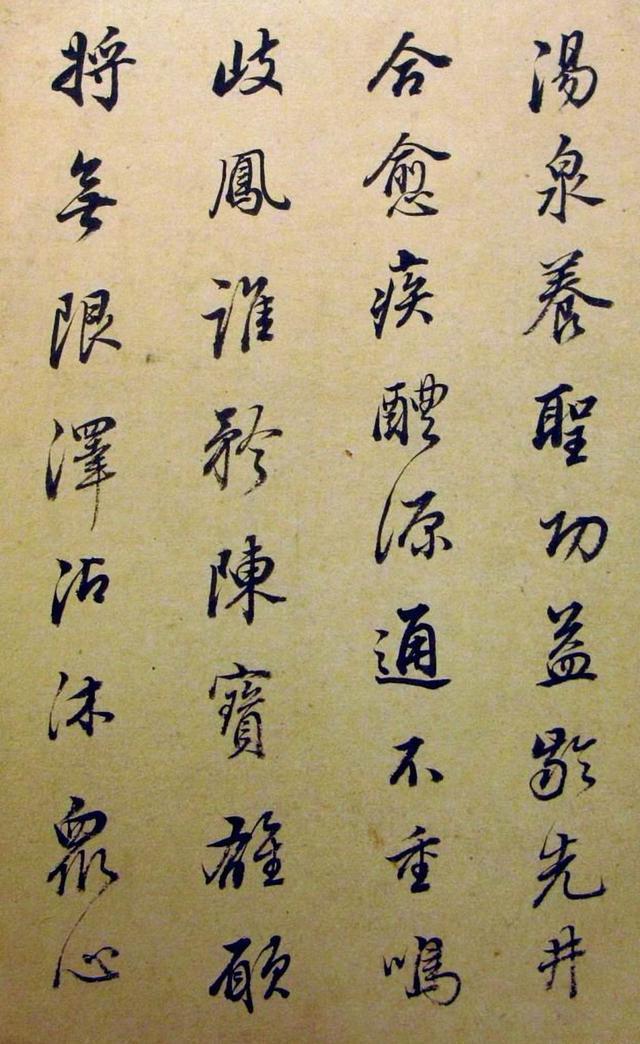 湯泉養聖功益齡先井
合愈疾醴源通不重鳴
歧鳳誰矜陳寶雄願
將無限澤沾沐眾心